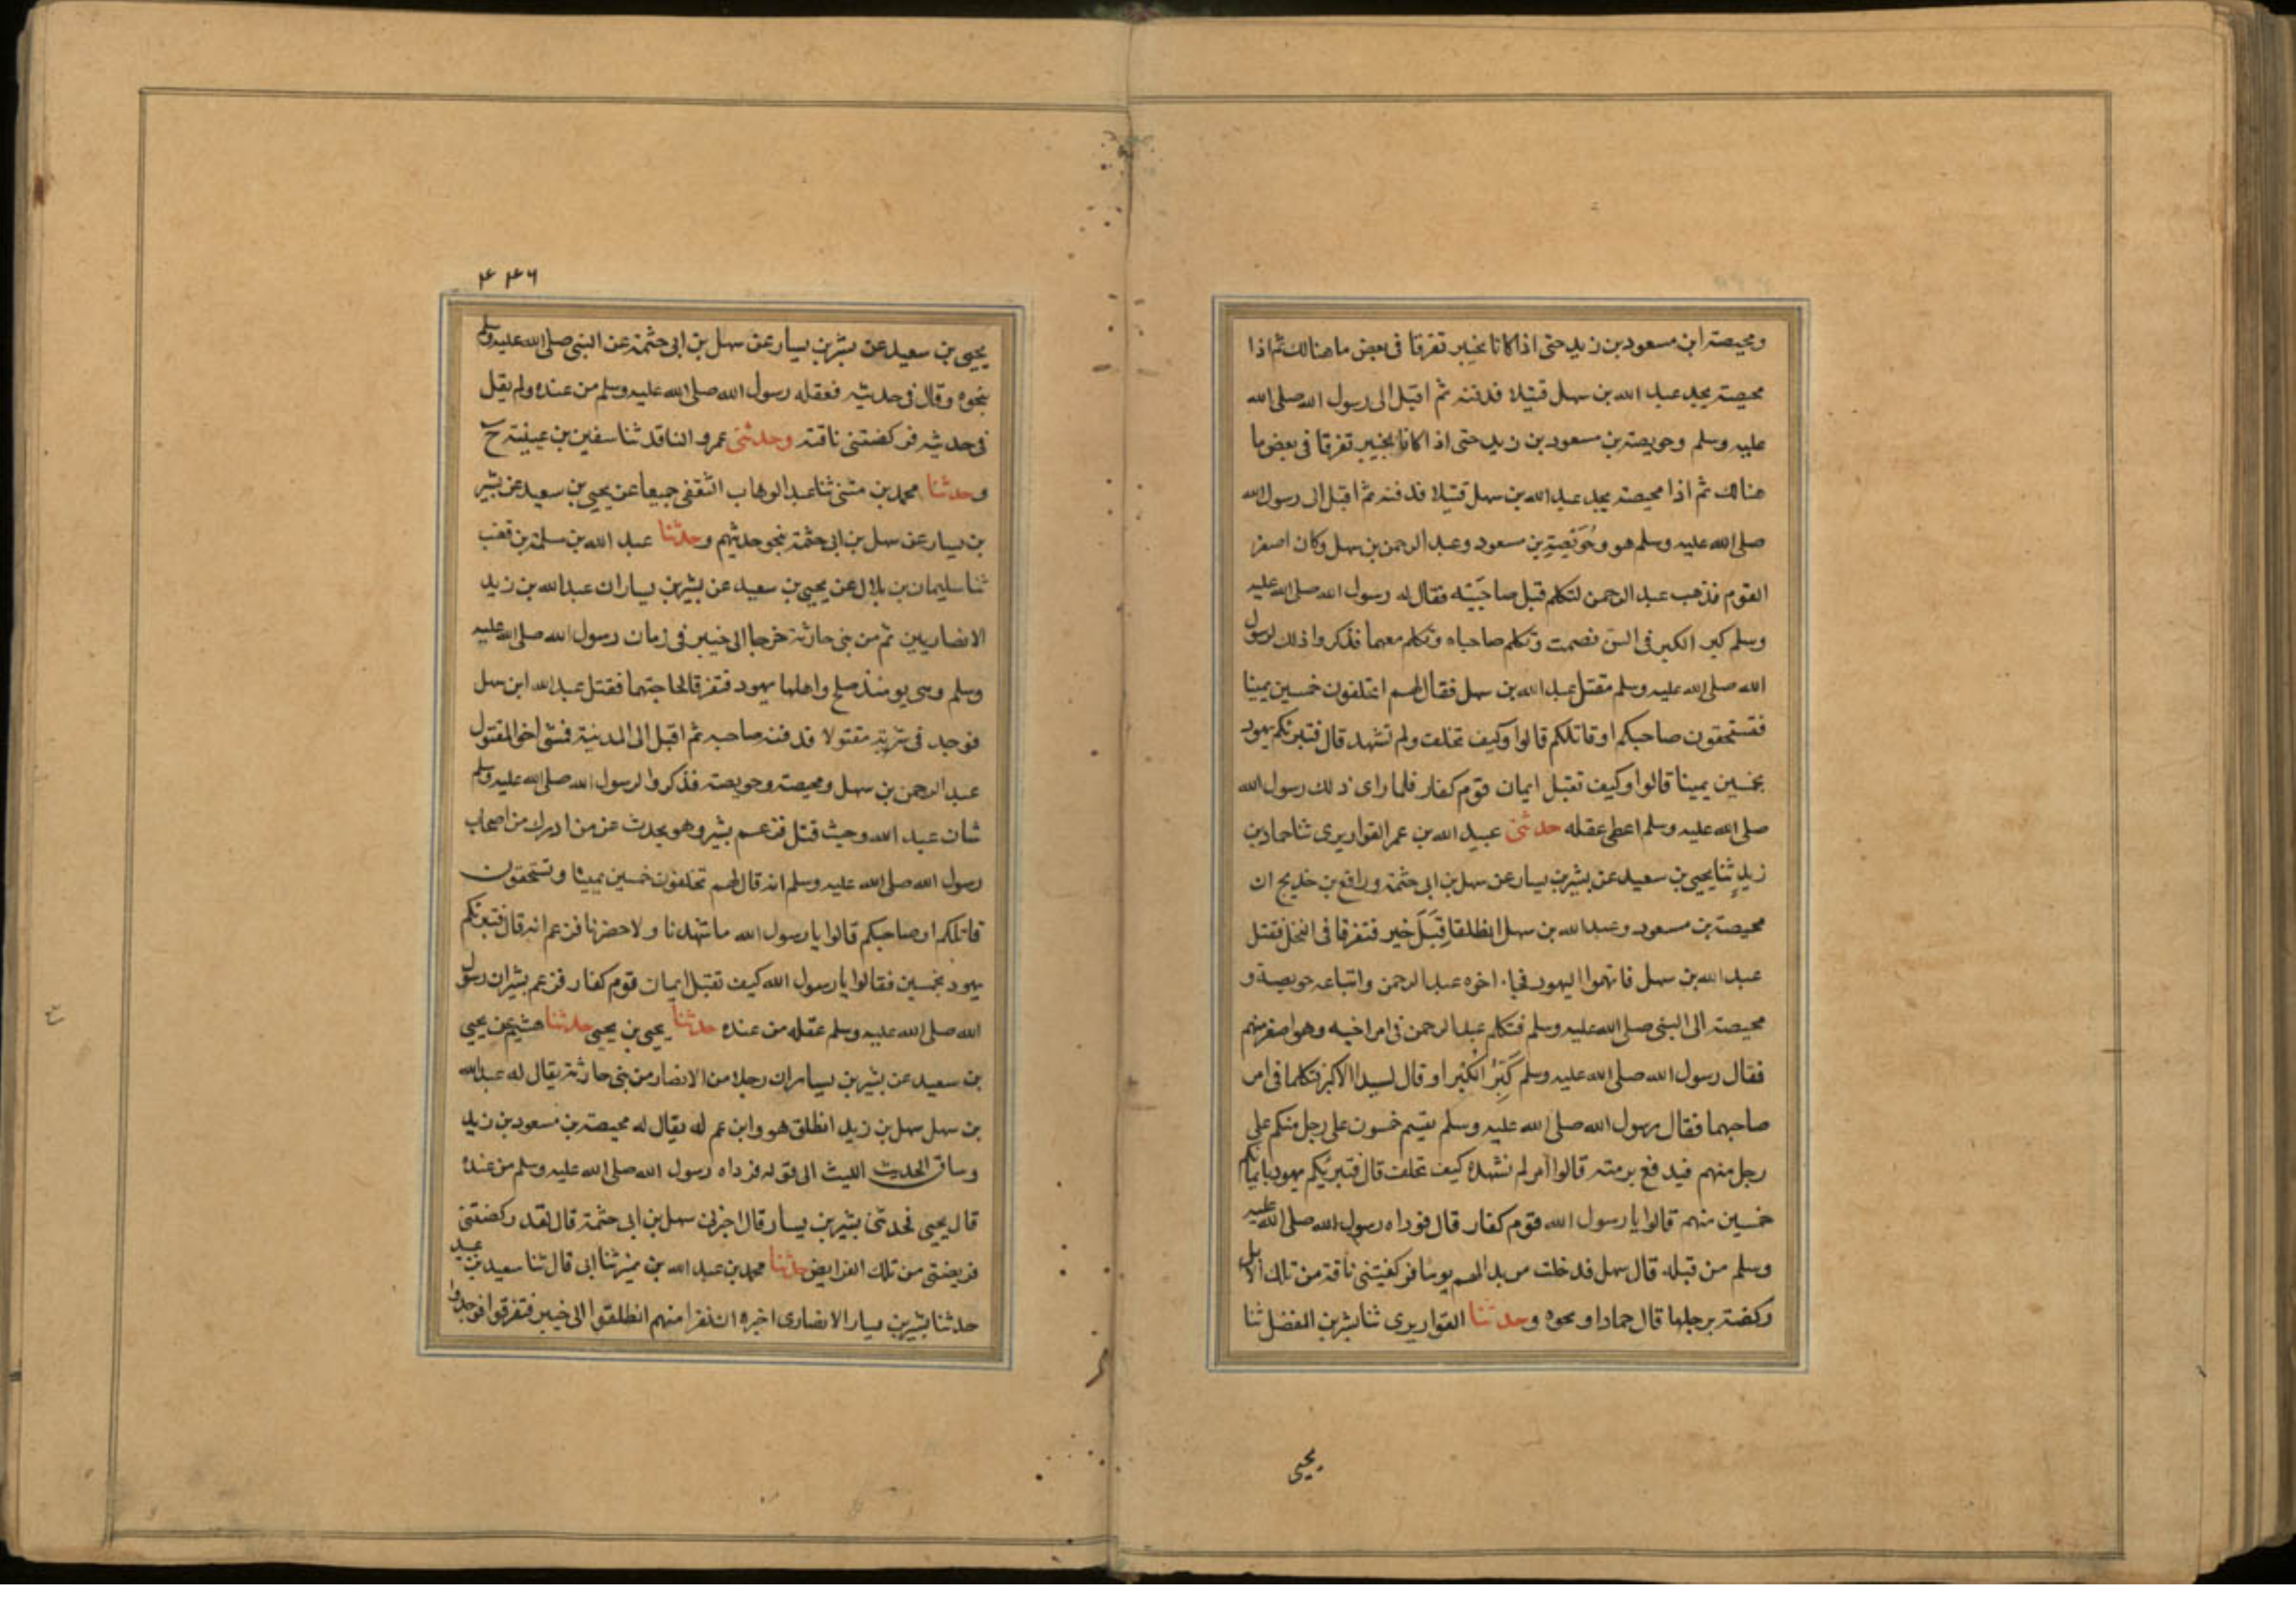 ومحيصة ابن مسعود بن زيد حتى اذا كانا بخيبر تفرقا فى بعض ما هنالك ثم اذا
محيصة يجد عبد الله بن سهل قتيلا فدفنه ثم اقبل الى رسول الله صلى الله
عليه وسلم وحويصة بن مسعود بن زيد حتى اذا كانا بخيبر تفرقا فى بعض ما
هنالك ثم اذا محيصة يجد عبد الله بن سهل قتيلا فدفنه ثم اقبل الى رسول الله
صلى الله عليه وسلم هو وحُوَيّصَةِ بن مسعود وعبد الرحمن بن سهل وكان اصغر
القوم فذهب عبد الرحمن لتكلم قبل صاحَبَيْه فقال له رسول الله صلى الله عليه
وسلم كبر الكبر فى السن فصمت وتكلم صاحباه وتكلم معهما فذكروا ذلك لرسول
الله صلى الله عليه وسلم مقتل عبد الله بن سهل فقال لهم اتحلفون خمسين يمينا
فتستحقون صاحبكم او قاتلكم قالوا وكيف نحلف ولم نشهد قال فتبرئكم يهود
بخمسين يمينا قالوا وكيف تقبل ايمان قوم كفار فلما راى ذلك رسول الله
صلى الله عليه وسلم اعطى عقله حدثنى عبيد الله بن عمر القواريرى ثنا حماد بن
زيدٍ ثنا يحيى بن سعيد عن بشير بن يسار عن سهل بن ابى حثمة ورافع بن خديج ان
محيصة بن مسعود وعبد الله بن سهل انطلقا قِبَلَ خيبر فتفرقا فى النخل فقتل
عبد الله بن سهل فاتهموا اليهود فجا اخوه عبد الرحمن وابنا عمه حويصة و
محيصة الى النبى صلى الله عليه وسلم فتكلم عبد الرحمن فى امر اخيه وهو اصغر منهم
فقال رسول الله صلى الله عليه وسلم كَبِّرُ الْكُبْر او قال ليبدا الاكبر فتكلما فى امر
صاحبهما فقال رسول الله صلى الله عليه وسلم يقسم خمسون على رجل منكم على
رجل منهم فيدفع برمته قالوا امر لم نشهده كيف نحلف قال فتبريُكم يهود بايمان
خمسين منهم قالوا يا رسول الله قوم كفار قال فوداه رسول الله صلى الله عليه
وسلم من قبله قال سهل فدخلت مربد الهم يوما فركضتنى ناقة من تلك الابل
ركضة برجلها قال حماد او نحوه وحدثنا القواريرى ثنا بشر بن المفضل ثنا
يحيى
٤٤٦
يحيى بن سعيد عن بشير بن يسار عن سهل بن ابى حثمة عن النبى صلى الله عليه وسلم
بنحوه وقال فى حديثه فعقله رسول الله صلى الله عليه وسلم من عنده ولم يقل
فى حديثه فركضتنى ناقة وحدثنى عمرو الناقد ثنا سفين بن عيينة ح
وحدثنا محمد بن مثنى ثنا عبد الوهاب الثقفى جميعا عن يحيى بن سعيد عن بشير
بن يسار عن سهل بن ابى حثمة بنحو حديثهم وحدثنا عبد الله بن سلمة بن قعنب
ثنا سليمان بن بلال عن يحيى بن سعيد عن بشير بن يسار ان عبد الله بن زيد
الانصاريين ثم من بنى حارثة خرجا الى خيبر فى زمان رسول الله صلى الله عليه
وسلم وهى يومئذ صلح واهلها يهود فتفرقا لحاجتهما فقتل عبد الله ابن سهل
فوجد فى شربةٍ مقتولا فدفنه صاحبه ثم اقبل الى المدينة فمشى اخو المقتول
عبد الرحمن بن سهل ومحيصة وحويصة فذكروا لرسول الله صلى الله عليه وسلم
شان عبد الله وحيث قتل فزعم بشير وهو يحدث عن من ادرك من اصحاب
رسول الله صلى الله عليه وسلم انه قال لهم تحلفون خمسين يمينا وتستحقون
قاتلكم او صاحبكم قالوا يا رسول الله ما شهدنا ولا حضرنا فزعم انه قال فتبرئكم
يهود بخمسين فقالوا يا رسول الله كيف نقبل ايمان قوم كفار فزعم بشير ان رسول
الله صلى الله عليه وسلم عقله من عنده حدثنا يحيى بن يحيى حدثنا هشيم عن يحيى
بن سعيد عن بشير بن يسار ان رجلا من الانصار من بنى حارثة يقال له عبد الله
بن سهل سهل بن زيد انطلق هو وابن عم له يقال له محيصة بن مسعود بن زيد
وساق الحديث الليث الى قوله فوداه رسول الله صلى الله عليه وسلم من عنده
قال يحيى فحدثنى بشير بن يسار قال اخبرنى سهل بن ابى حثمة قال لقد ركضتنى
فريضتى من تلك الفرايض حدثنا محمد بن عبد الله بن نمير ثنا ابى قال ثنا سعيد بن عبيد
حدثنا بشير بن يسار الانصارى اخبره ان نفرا منهم انطلقوا الى خيبر فتفرقوا فوجدوا